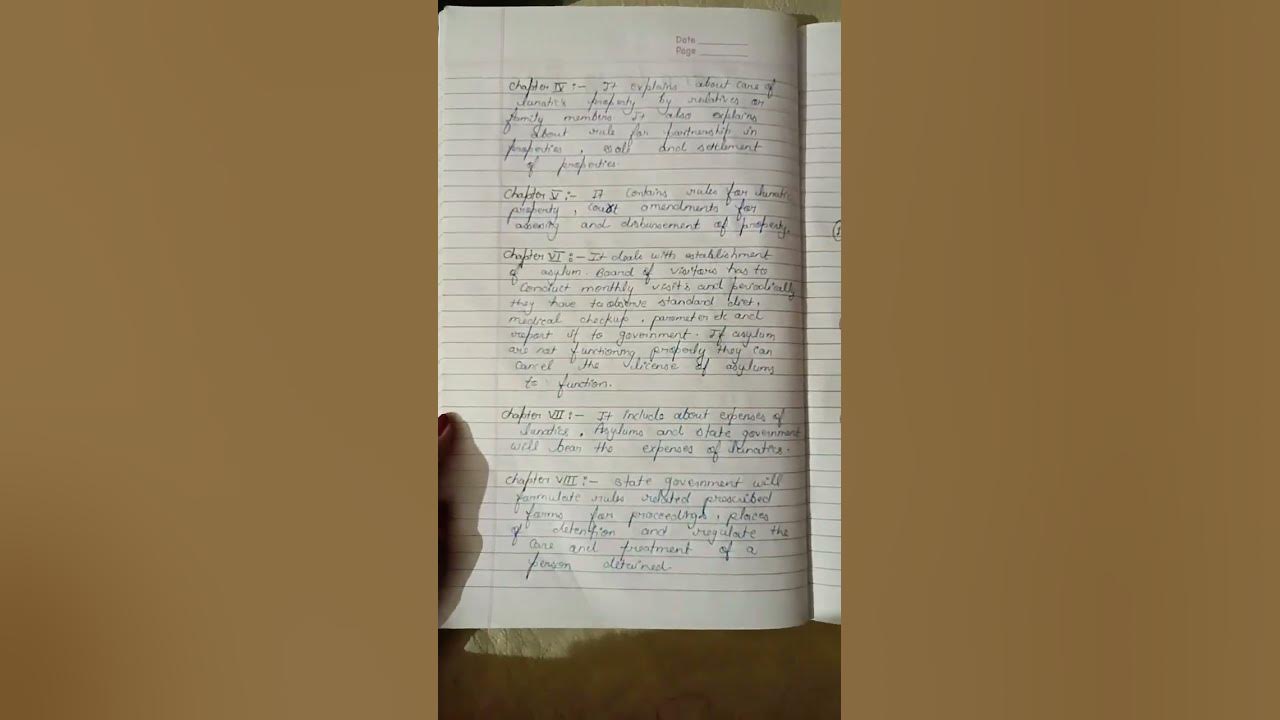 Date
Page
Chapter IV :- It explains about care of
lunatics property by relatives or
family members It also explains
about rule for partnership in
properties, sale and settlement
of properties.
Chapter V :- It contains rules for lunatic
property, court amendments for
and disbursement of property.
Chapter VI :- It deals with establishment
of asylum. Board of visitors has to
conduct monthly visits and periodically
they have to observe standard diet,
medical checkup, parameter etc and
report it to government. If asylum
are not functioning properly they can
cancel the license of asylums
to function.
Chapter VII :- It include about expenses of
lunatics, Asylums and state government
will bear the expenses of lunatics.
Chapter VIII :- State government will
formulate rules related prescribed
forms for proceedings, places
of detention and regulate the
care and treatment of a
person detained.